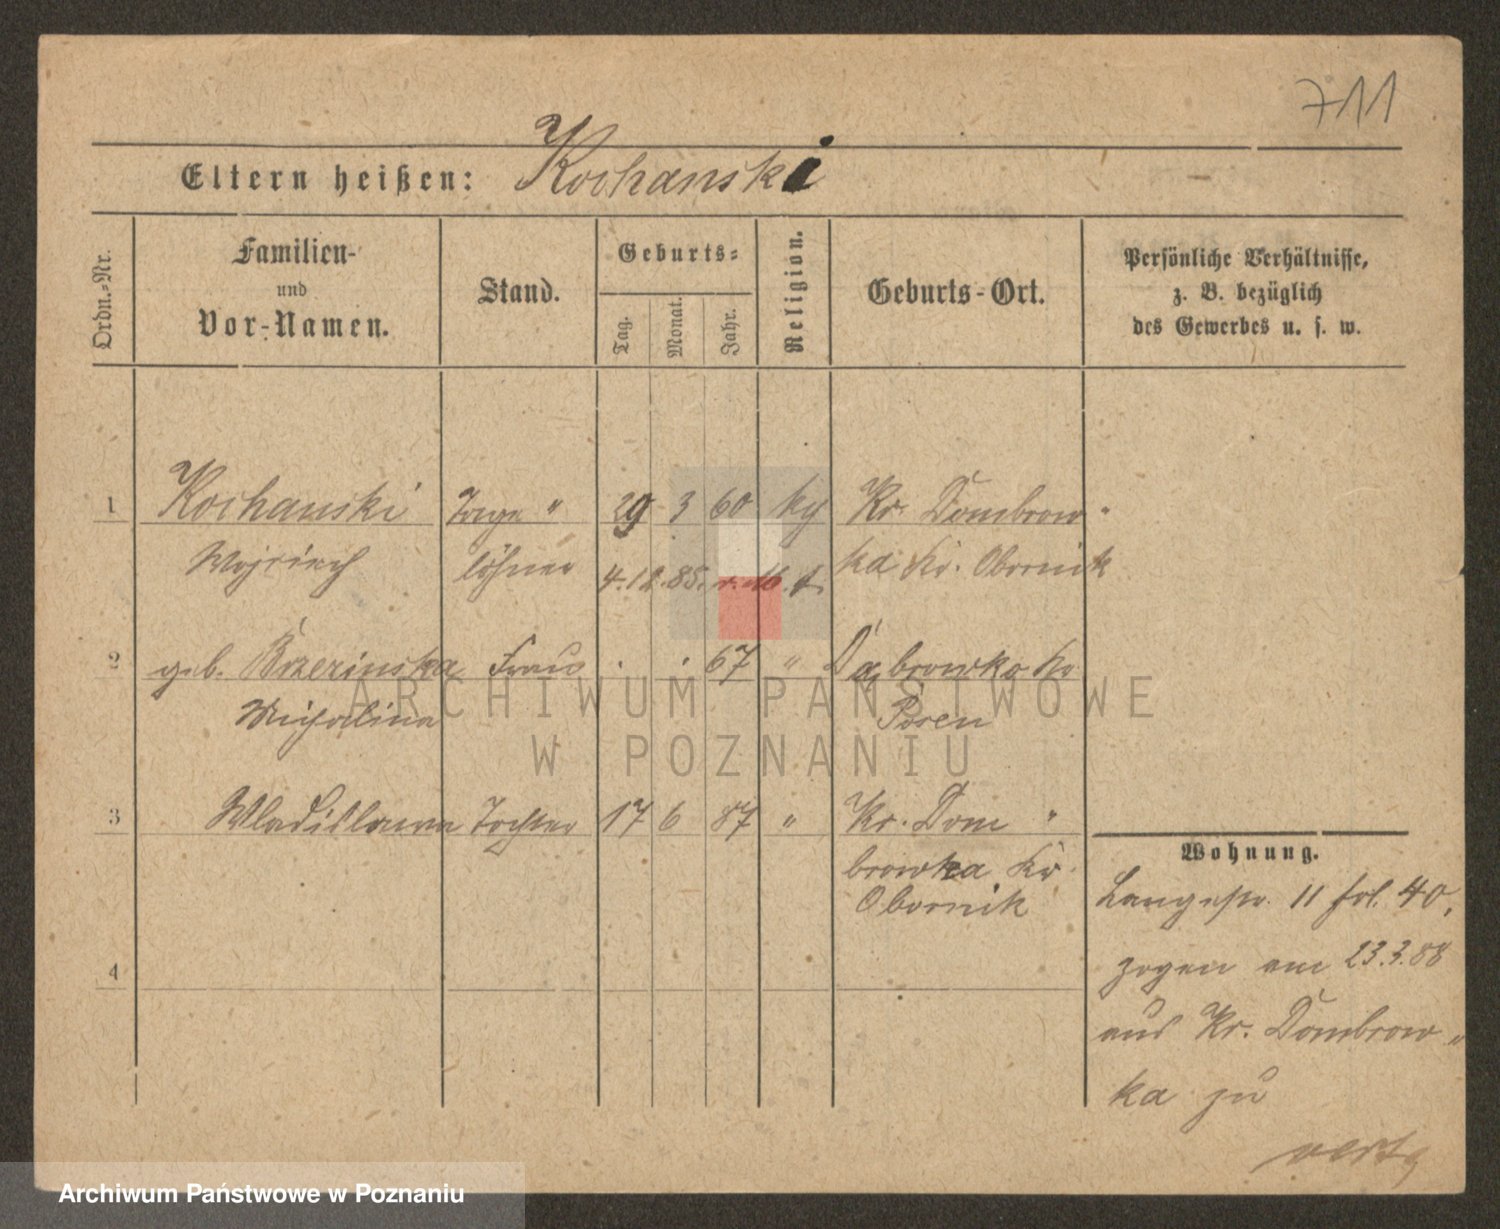 711
Eltern heißen: Kochanski
Ordn.-Nr.
Familien-
und
Vor-Namen.
Stand.
Geburts-
Tag.
Monat.
Jahr.
Religion.
Geburts-Ort.
Persönliche Verhältnisse,
z. B. bezüglich
des Gewerbes u. s. w.
1 Kochanski Tage " 29 3 60 Kr. Dombrow "
Wojciech löhner 4.12.85. ka Kr. Obornik
2 geb. Brzezinska Frau . . 67 " Dąbrowko Kr
Michalina Posen
3 Wladislawa Tochter 17 6 87 " Kr. Dom "
browka Kr.
Obornik
4
Wohnung.
Langestr. 11 fol. 40,
zogen am 23.3.88
aus Kr. Dombrow "
ka zu
ARCHIWUM PAŃSTWOWE
W POZNANIU
Archiwum Państwowe w Poznaniu